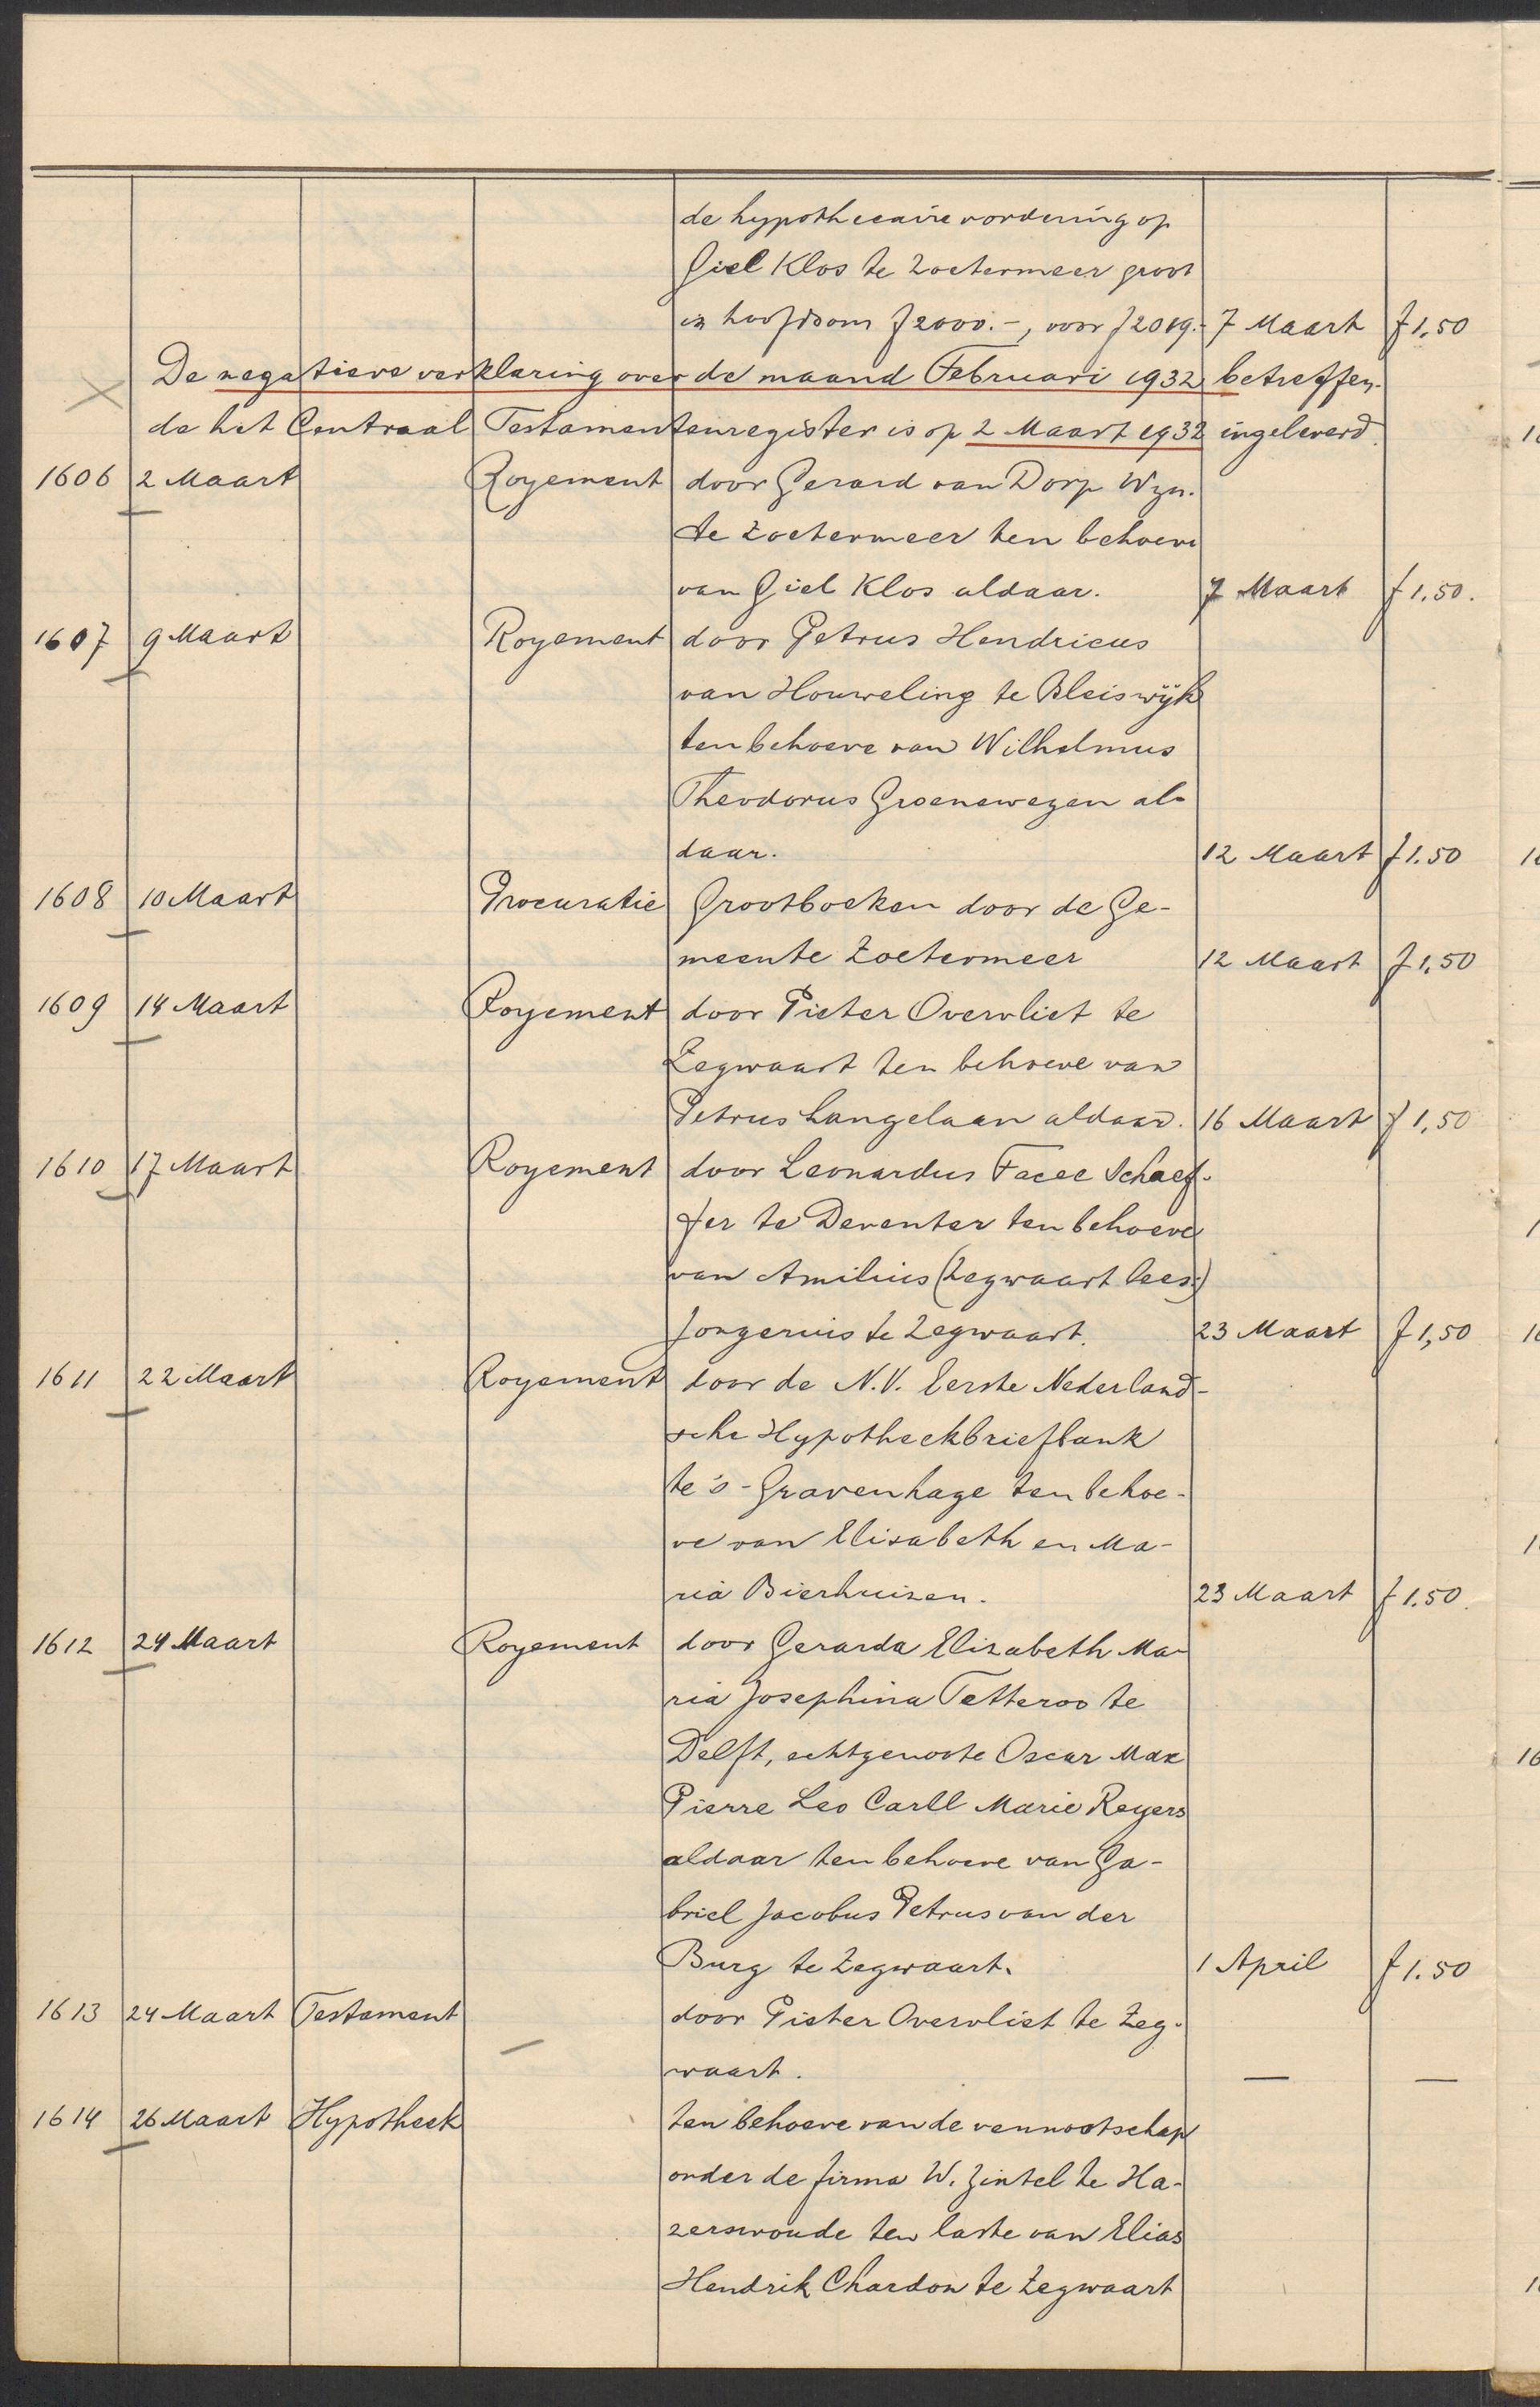 de hypothecaire vordering op
Giel Klos te Zoetermeer groot
in hoofdsom f 2000.-, voor f 2019.- 7 Maart f 1,50
De negatieve verklaring over de maand Februari 1932 betreffen-
de het Centraal Testamentenregister is op 2 Maart 1932 ingeleverd.
1606 2 Maart Royement door Gerard van Dorp Wzn.
te Zoetermeer ten behoeve
van Giel Klos aldaar. 7 Maart f 1.50.
1607 9 Maart Royement door Petrus Hendricus
van Houweling te Bleiswijk
ten behoeve van Wilhelmus
Theodorus Groenewegen al-
daar. 12 Maart f 1.50
1608 10 Maart Procuratie Grootboeken door de Ge-
meente Zoetermeer 12 Maart f 1,50
1609 14 Maart Royement door Pieter Overvliet te
Zegwaart ten behoeve van
Petrus Langelaan aldaar. 16 Maart f 1,50
1610 17 Maart Royement door Leonardus Facee Schaef-
fer te Deventer ten behoeve
van Amilius (Zegwaart lees:)
Jongerius te Zegwaart. 23 Maart f 1,50
1611 22 Maart Royement door de N.V. Eerste Nederland-
sche Hypotheekbriefbank
te 's-Gravenhage ten behoe-
ve van Elisabeth en Ma-
ria Bierhuizen. 23 Maart f 1.50.
1612 24 Maart Royement door Gerarda Elizabeth Ma-
ria Josephina Tetteroo te
Delft, echtgenoote Oscar Max
Pierre Leo Carll Marie Reyers
aldaar ten behoeve van Ga-
briel Jacobus Petrus van der
Burg te Zegwaart. 1 April f 1.50
1613 24 Maart Testament door Pieter Overvliet te Zeg-
waart. — —
1614 26 Maart Hypotheek ten behoeve van de vennootschap
onder de firma W. Zintel te Ha-
zerswoude ten laste van Elias
Hendrik Chardon te Zegwaart